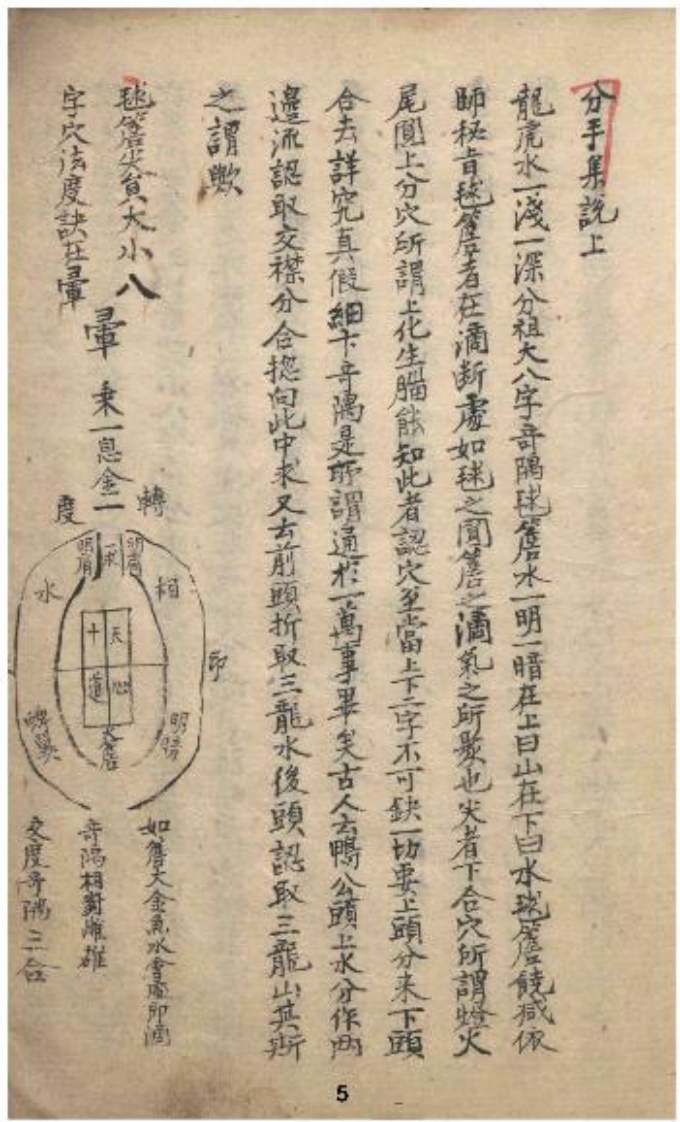 分手集説上
龍虎水一淺一深分祖大八字奇隅毬簷水一明一暗在上曰山在下曰水毬簷饒减依
師秘旨毬簷者在滴断處如毬之圓簷之滴氣之所聚也尖者下合穴所謂蝗火
尾圓上分穴所謂上化生腦能知此者認穴至當上下二字不可缺一切要上頭分来下頭
合去詳究真假細卞奇隅是所謂通於一萬事畢矣古人去鴨公頭上水分作兩
邊流認取交襟分合揔向此中求又去前頭折取三龍水後頭認取三龍山其斯
之謂歟
毬簷尖貟大小八
字穴法度訣在暈
暈
乗一息金二
轉
度
明肩
一乗
明肩
水
相
印
天
十
心
道
大簷
明暗
蟬翼
如簷大金魚水會處即滴
奇隅相對雌雄
交度奇隅三合
5